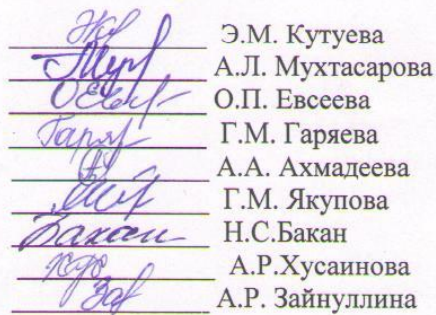 Э.М. Кутуева
А.Л. Мухтасарова
О.П. Евсеева
Г.М. Гаряева
А.А. Ахмадеева
Г.М. Якупова
Н.С.Бакан
А.Р.Хусаинова
А.Р. Зайнуллина